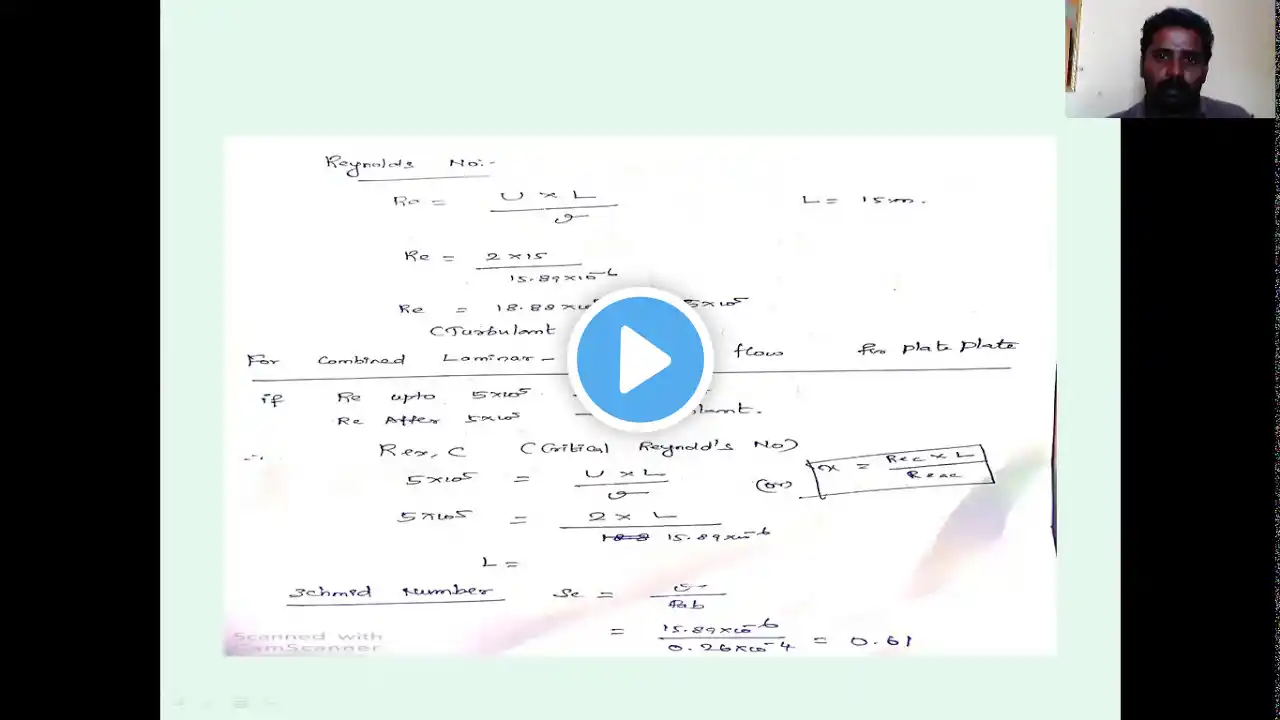 Reynolds No:-
Re = U × L / υ
L = 15m.
Re = 2 × 15 / 15.89×10⁻⁶
Re = 18.88×10 5×10⁵
(Turbulant
For Combined Laminar - flow for plate plate
if Re upto 5×10⁵
Re After 5×10⁵ -
∴ Rex, C (Critical Reynold's No)
5×10⁵ = U × L / υ (or) x = Rec × L / Reac
5×10⁵ = 2 × L / 15.89×10⁻⁶
L =
Schmid Number Sc = υ / Dab
= 15.89×10⁻⁶ / 0.26×10⁻⁴ = 0.61
Scanned with
CamScanner